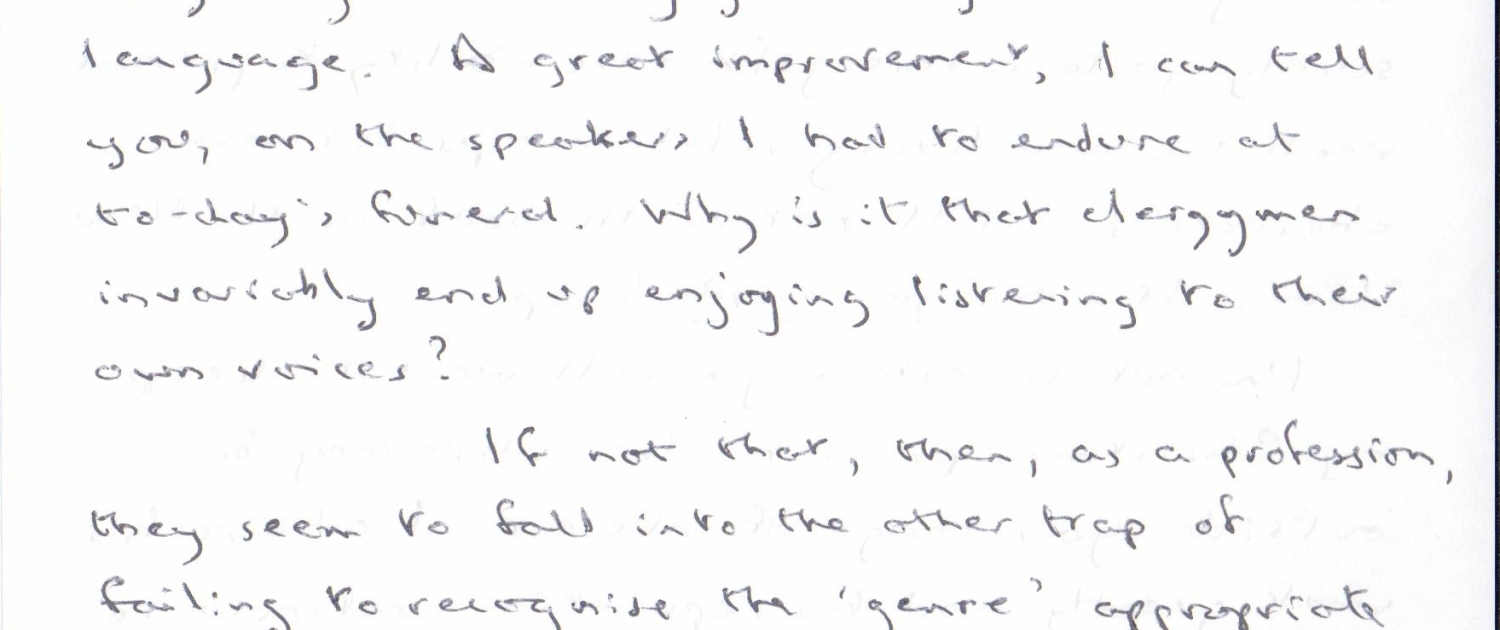 language. A great improvement, I can tell
you, on the speakers I had to endure at
to-day's funeral. Why is it that clergymen
invariably end up enjoying listening to their
own voices?
If not that, then, as a profession,
they seem to fall into the other trap of
failing to recognise the 'genre' appropriate